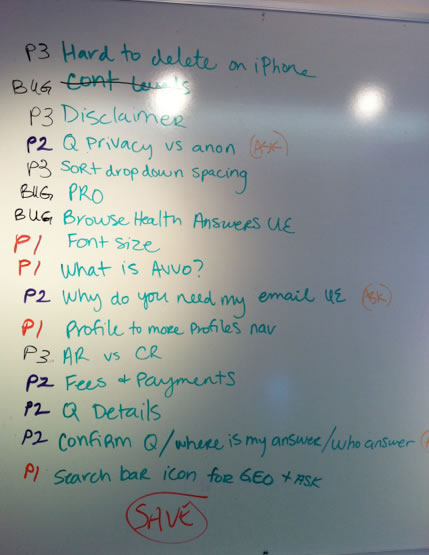 P3 Hard to delete on iPhone
BUG Cont Levels
P3 Disclaimer
P2 Q Privacy vs anon (ASK)
P3 Sort drop down spacing
BUG PRO
BUG Browse Health Answers UE
P1 Font size
P1 What is Avvo?
P2 Why do you need my email UE (ASK)
P1 Profile to more Profiles nav
P3 AR vs CR
P2 Fees + Payments
P2 Q Details
P2 Confirm Q/where is my answer/who answer
P1 Search bar icon for GEO + ASK
SAVE